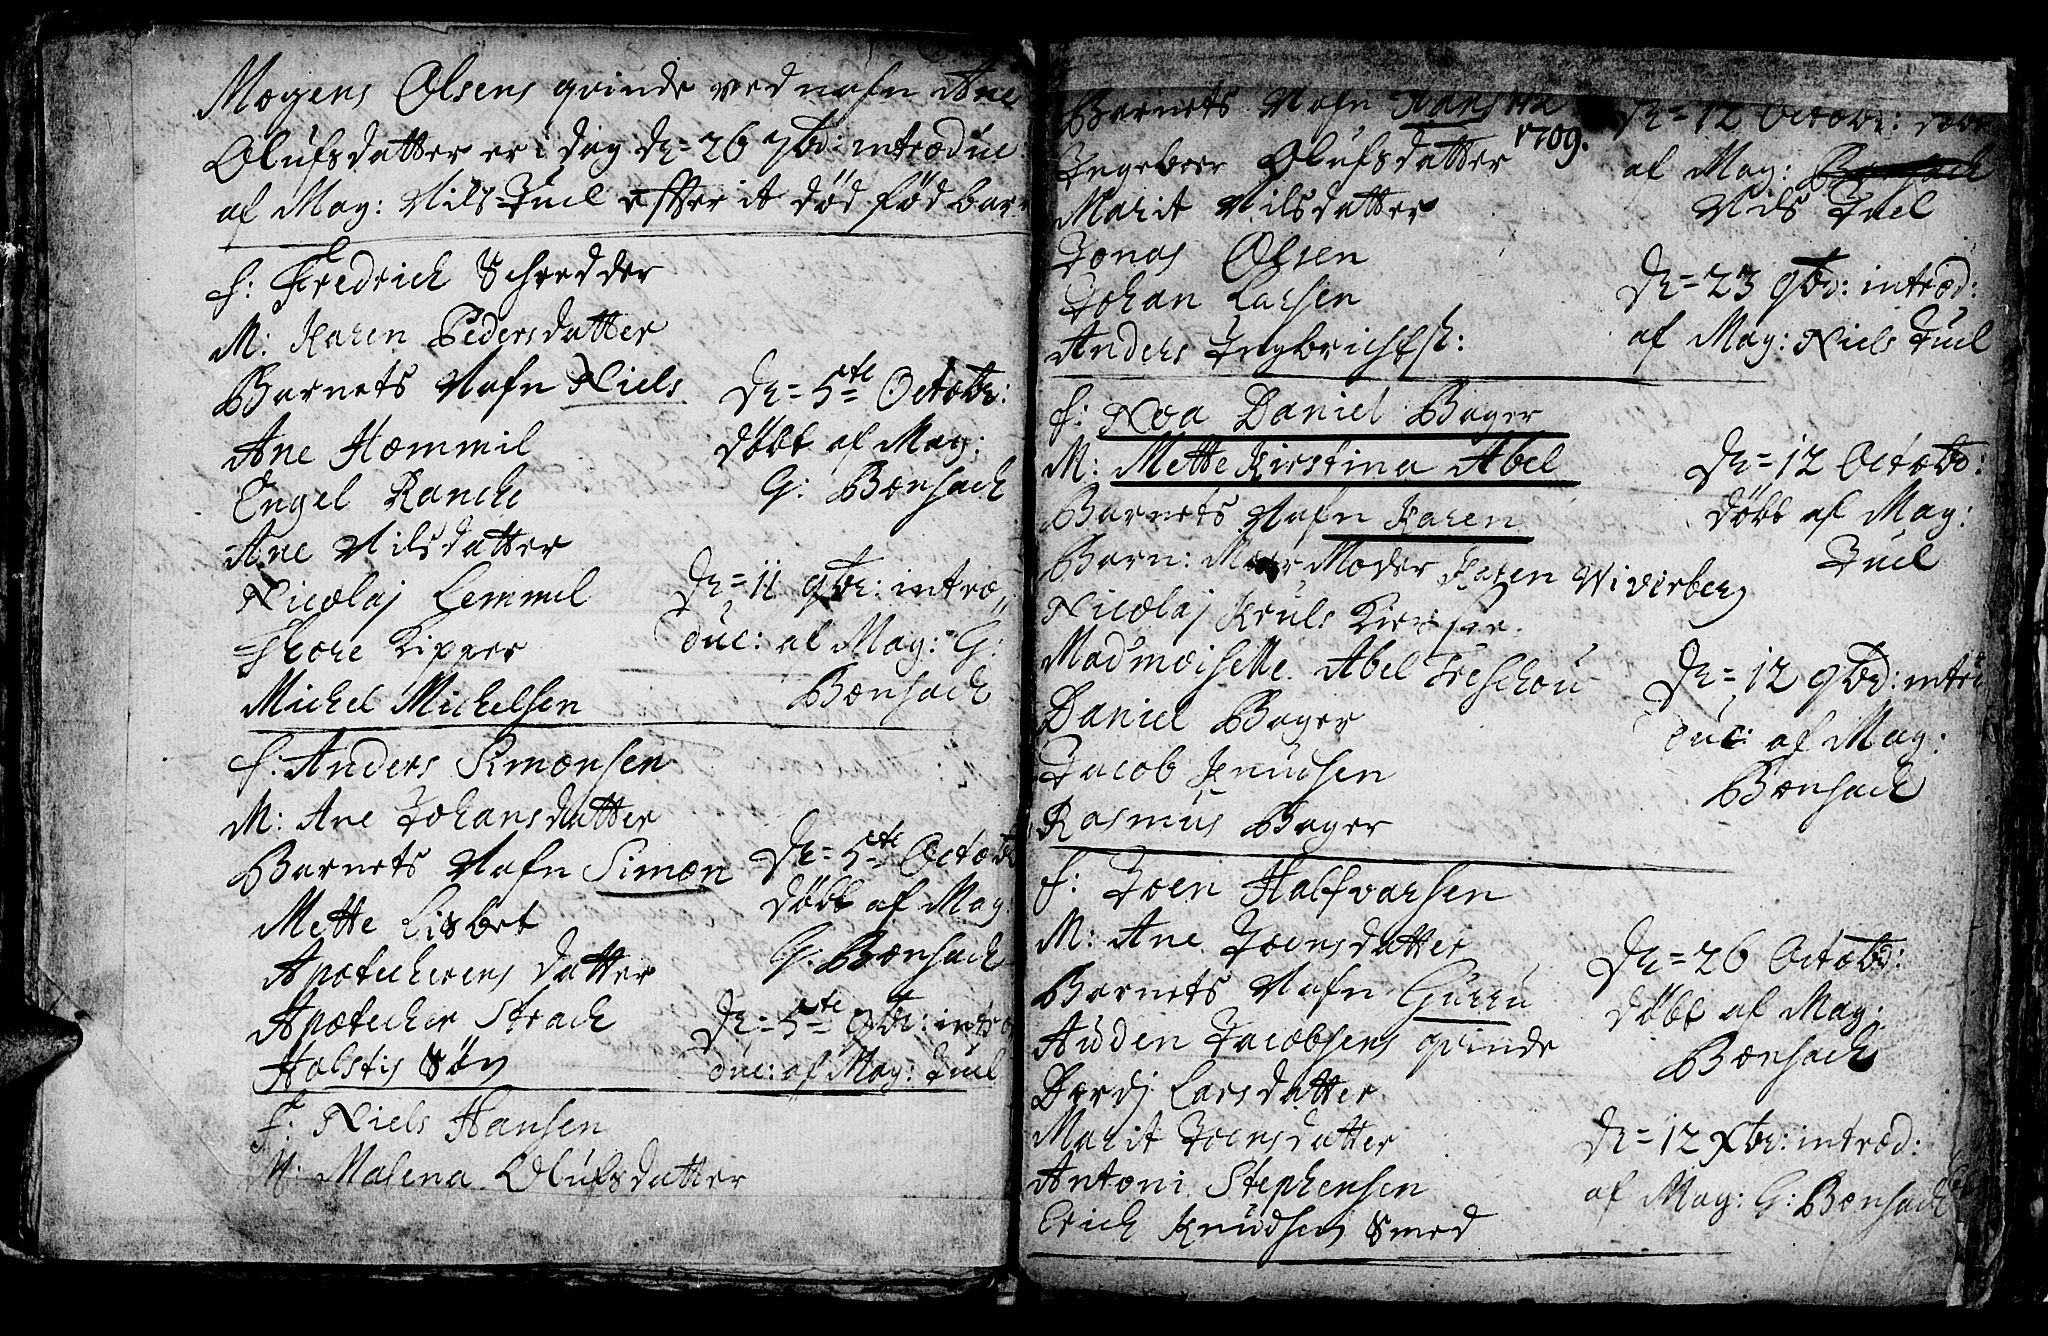 Mogens Olsens qvinde ved nafn Ane
Olufsdatter er i dag dn= 26 7br: introduc
af Mag: Nils Juel effter it død fød barn
f: Fredrich Schredder
M: Karen Pedersdatter
Barnets Nafn Niels
Ane Hommil
Engel Ranche
Ane Nilsdatter
Nicolaj Lemmel
Thore Kipper
Michel Michelsen
Dn= 5te Octobr:
døbt af Mag:
G: Bonsach
Dn= 11 9br: intro
duc: af Mag: G:
Bonsach
f. Anders Simonsen
M: Ane Johansdatter
Barnets Nafn Simon
Mette Lisbet
Apotecherens datter
Apotecher Strach
Holstis Søn
Dn= 5te Octob
døbt af Mag
G: Bonsach
Dn= 5te 9br: intro
duc: af Mag: Juel
f: Niels Hansen
M: Malena Olufsdatter
Barnets Nafn Hans
1709.
Ingeboer Olufsdatter
Marit Nilsdatter
Jonas Olsen
Johan Larsen
Anders Ingbrichts:
Dn= 12 Octobr: døbt
af Mag: Bonsach
Nils Juel
Dn= 23 9br: introd:
af Mag: Niels Juel
f: Noa Daniel Bager
M: Mette Kirstina Abel
Barnets Nafn Karen
Barn: Moder Karen Wivirberg
Nicolaj Kruls
Madmoiselle Abel Treschou
Daniel Bager
Jacob Knudsen
Rasmus Bager
Dn= 12 Octobr:
døbt af Mag:
Juel
Dn= 12 9br: intro
duc: af Mag:
Bonsach
f: Joen Halfvorsen
M: Ane Joensdatter
Barnets Nafn Gurru
Auden Jacobsens qvinde
Dordj Larsdatter
Marit Joensdatter
Antoni Stephensen
Erich Knudsen Smed
Dn= 26 Octobr:
døbt af Mag:
Bonsach
Dn= 12 Xbr: introd:
af Mag: G: Bonsach